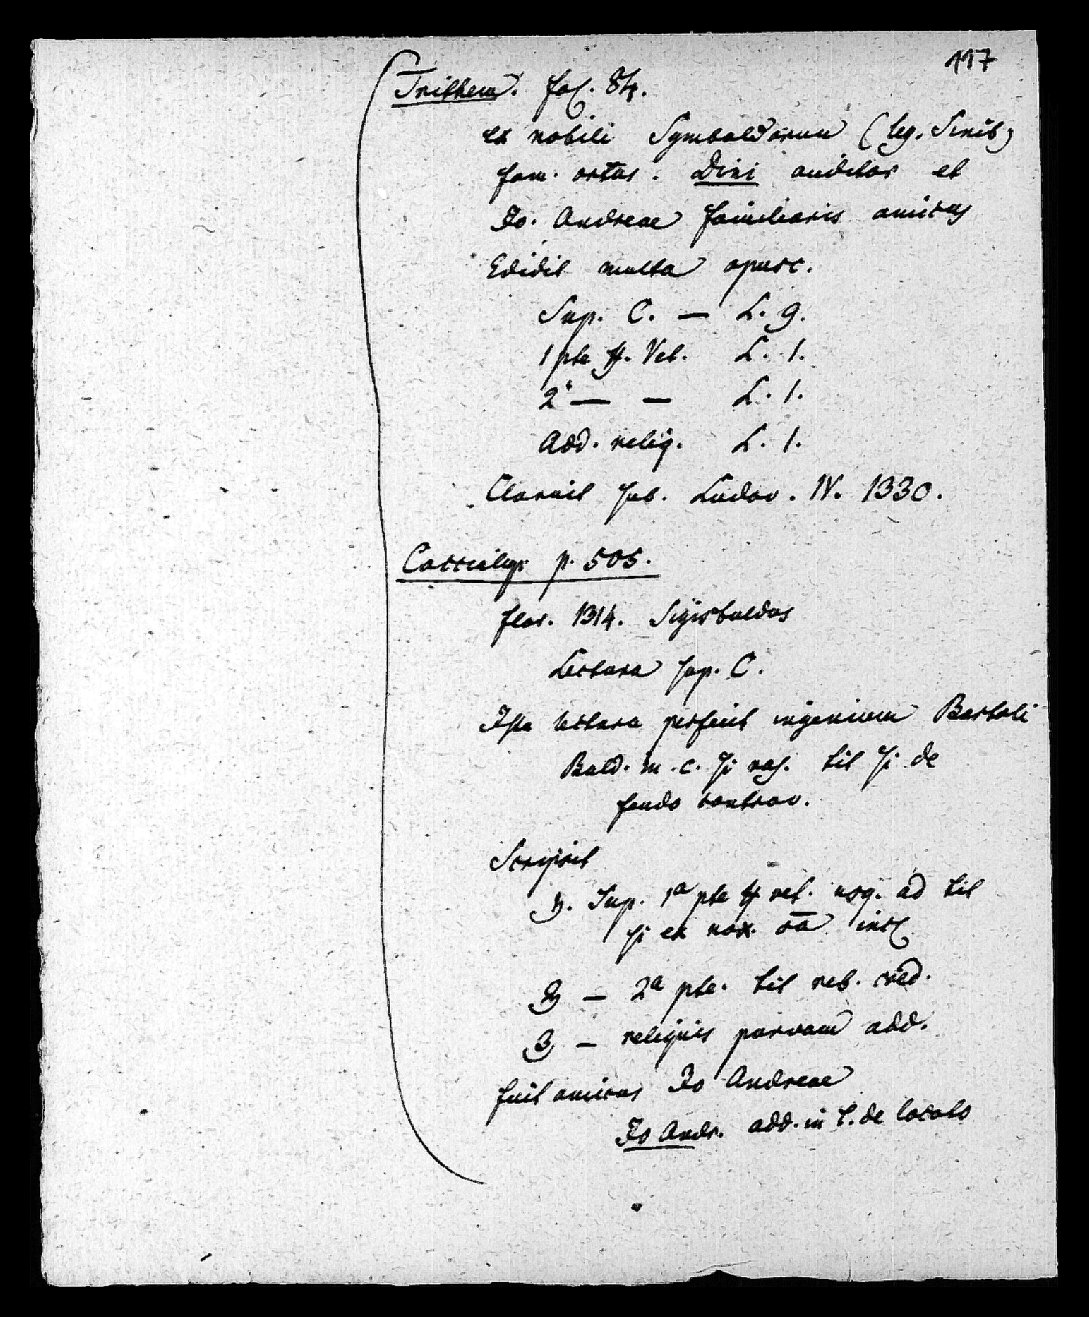 117
Trithem. fol. 84.
ex nobili Symbaldorum (leg. Sinib)
fam. ortus. Dini auditor et
Jo. Andreae familiaris amicus
Edidit multa opusc.
Sup. C. — L. 9.
1 pte ff. Vet. L. 1.
2. — — L. 1.
Add. reliq. L. 1.
Claruit sub. Ludov. IV. 1330.
p. 505.
flor. 1314. Sigisbaldus
Lectura sup. C.
Ipsa lectura perfecit ingenium Bartoli
Bald. in c. si vas. tit si de
feudo controv.
Scripsit
Sup. 1a pte ff vet. usq. ad tit
si ex nox. ca
— 2a pte. tit reb. cred.
3, — reliquis parvam add.
fuit amicus Jo Andreae
Jo Andr. add. in t. de locato